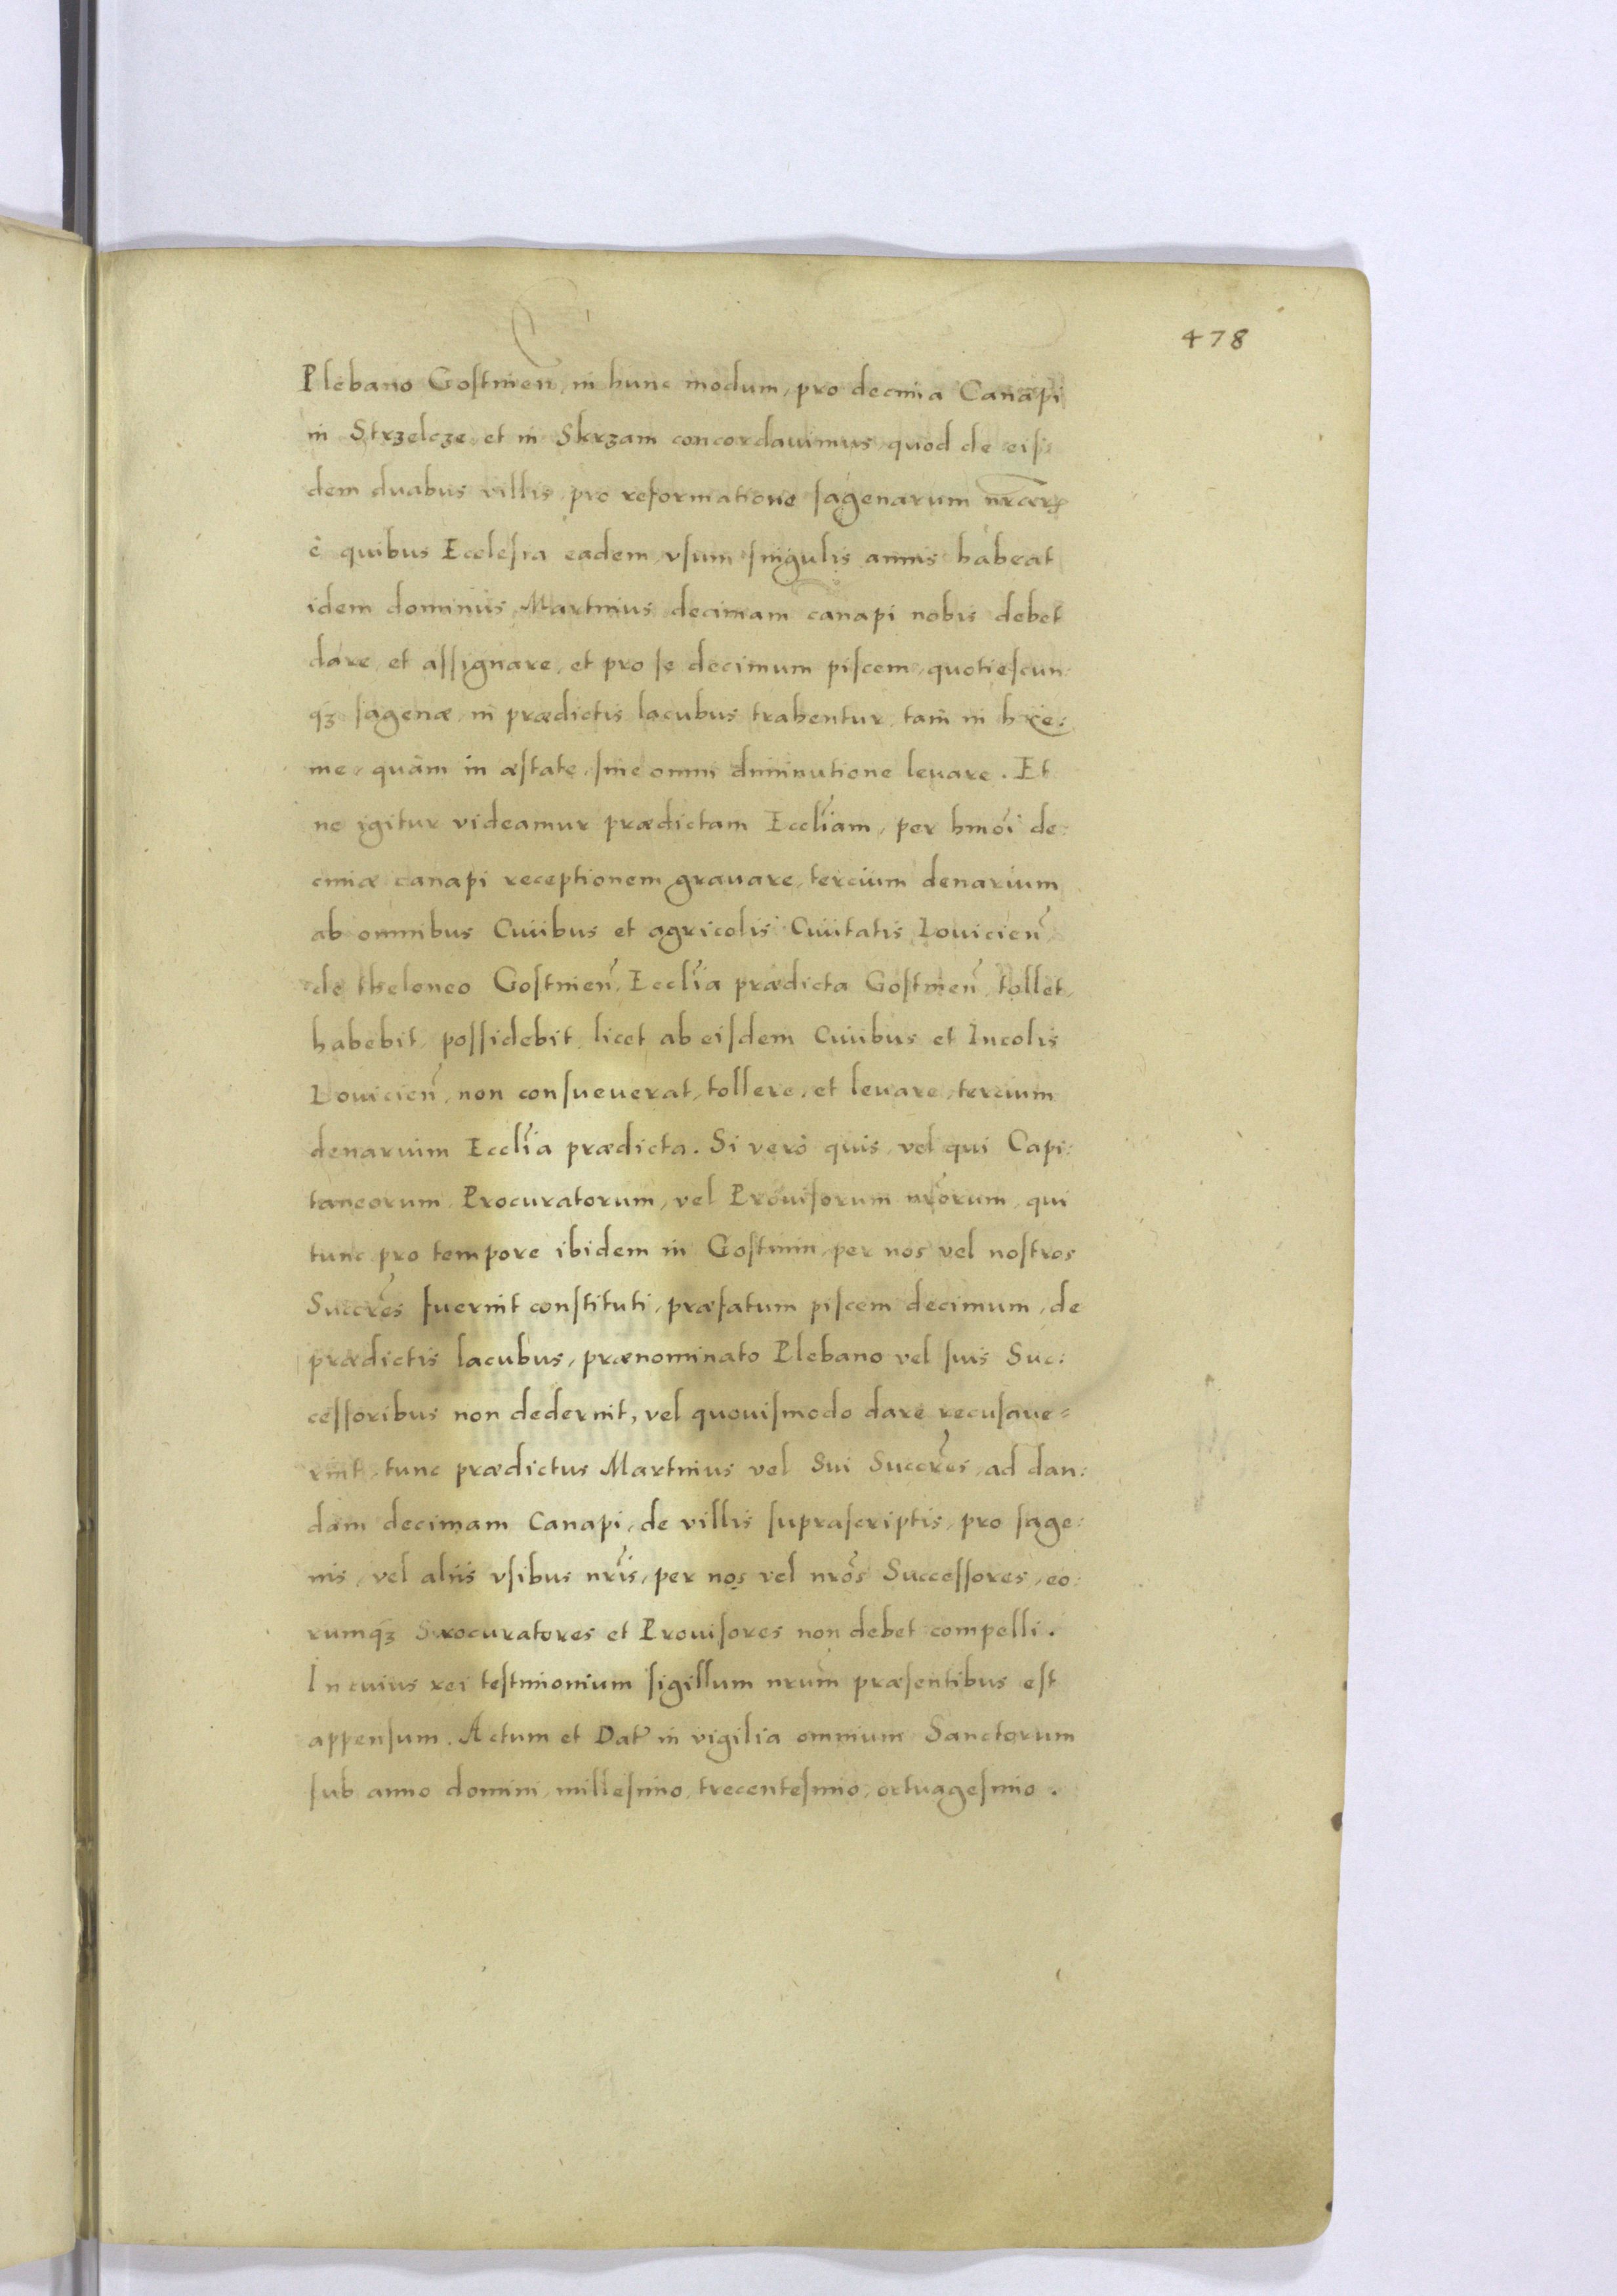 478
Plebano Gostinen̄, in hunc modum, pro decima Canapi
in Strzelcze, et in Skrzam concordauimus, quod de eis:
dem duabus villis, pro reformatione sagenarum nr̄aruꝫ
è quibus Ecclesia eadem, vsum singulis annis habeat
idem dominus Martinus decimam canapi nobis debet
dare, et assignare, et pro se decimum piscem, quotiescun:
qꝫ sagenæ, in prædictis lacubus trahentur, tam in hye:
me, quàm in æstate, sine omni diminutione leuare. Et
ne igitur videamur prædictam Eccl̃iam, per hmõi de:
cimæ canapi receptionem grauare, tercium denarium
ab omnibus Ciuibus et agricolis Ciuitatis Louicien̄,
de theloneo Gostinen̄, Eccl̃ia prædicta Gostinen̄, tollet,
habebit, possidebit, licet ab eisdem Ciuibus et Incolis
Louicien̄, non consueuerat, tollere, et leuare, tercium
denarium Eccl̃ia prædicta. Si verò quis, vel qui Capi:
taneorum, Procuratorum, vel Prouisorum nr̃orum, qui
tunc pro tempore ibidem in Gostinin, per nos vel nostros
Succr̃es fuerint constituti, præfatum piscem decimum, de
prædictis lacubus, prænominato Plebano vel suis Suc:
cessoribus non dederint, vel quouismodo dare recusaue=
rint, tunc prædictus Martinus vel Sui Succr̃es, ad dan:
dam decimam Canapi, de villis suprascriptis, pro sage:
nis, vel aliis vsibus nr̃is, per nos vel nr̃os Successores, eo:
rumqꝫ Srocuratores et Prouisores non debet compelli.
In cuius rei testimonium sigillum nr̃um præsentibus est
appensum. Actum et Dat̃ in vigilia omnium Sanctorum
sub anno domini, millesimo, trecentesimo, octuagesimo.